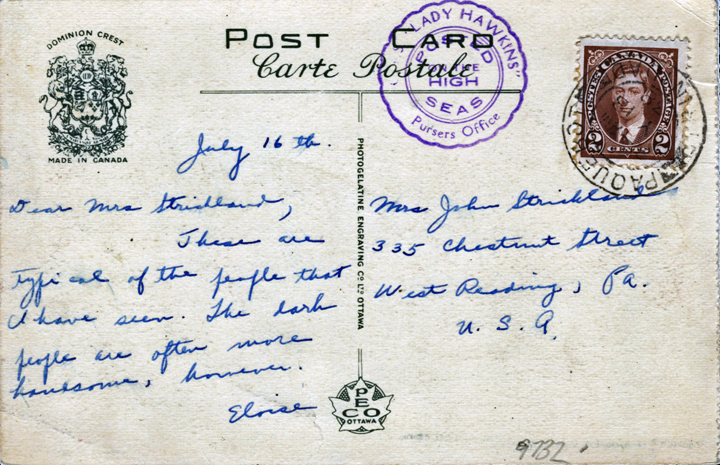 DOMINION CREST
MADE IN CANADA
POST CARD
Carte Postale
"LADY HAWKINS"
POSTED
ON THE
HIGH
SEAS
Pursers Office
POSTES CANADA POSTAGE
2 CENTS 2
PAQUEBOT
July 16th.
Dear Mrs Strickland,
These are
typical of the people that
I have seen. The dark
people are often more
handsome, however.
Eloise
PHOTOGELATINE ENGRAVING CO. LTD. OTTAWA
Mrs John Strickland
335 Chestnut Street
West Reading, Pa.
U.S.A.
PECO
OTTAWA
9732